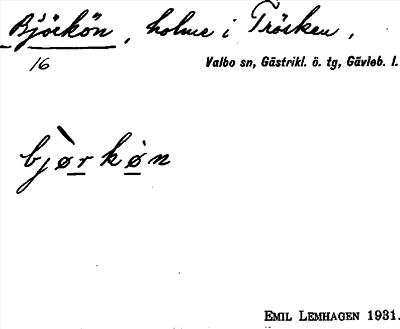 Björkön, holme i Trösken,
16
Valbo sn, Gästrikl. ö. tg, Gävleb. l.
bjørkøn
EMIL LEMHAGEN 1931.